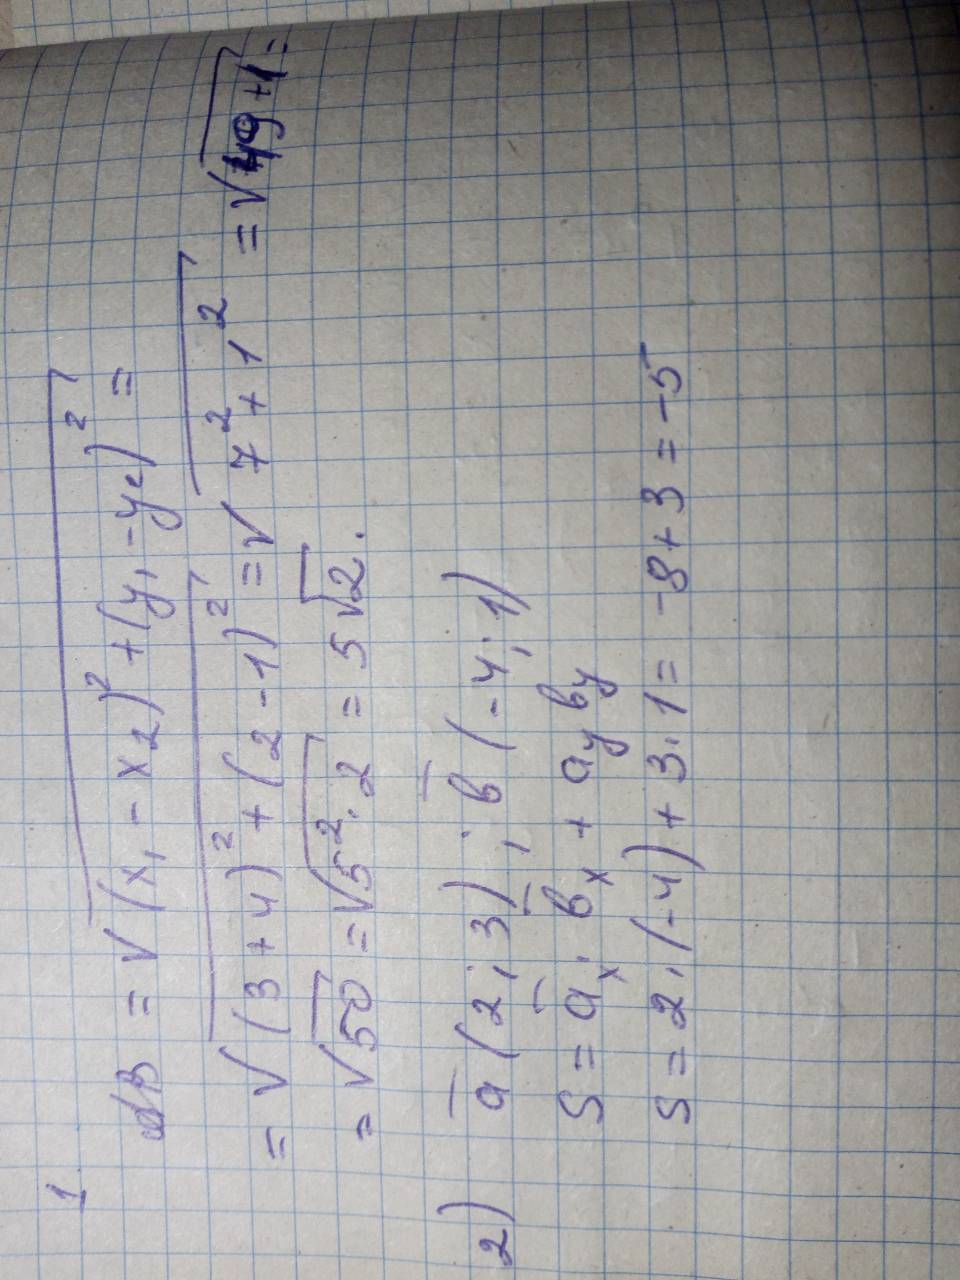 1
AB = √(x₁ - x₂)² + (y₁ - y₂)² =
= √(3+4)² + (2-1)² = √7² + 1² = √49+1 =
= √50 = √5²·2 = 5√2.
2) a̅ (2; 3); b̅ (-4; 1)
S = a̅ₓ · b̅ₓ + aᵧ bᵧ
S = 2·(-4) + 3·1 = -8+3 = -5